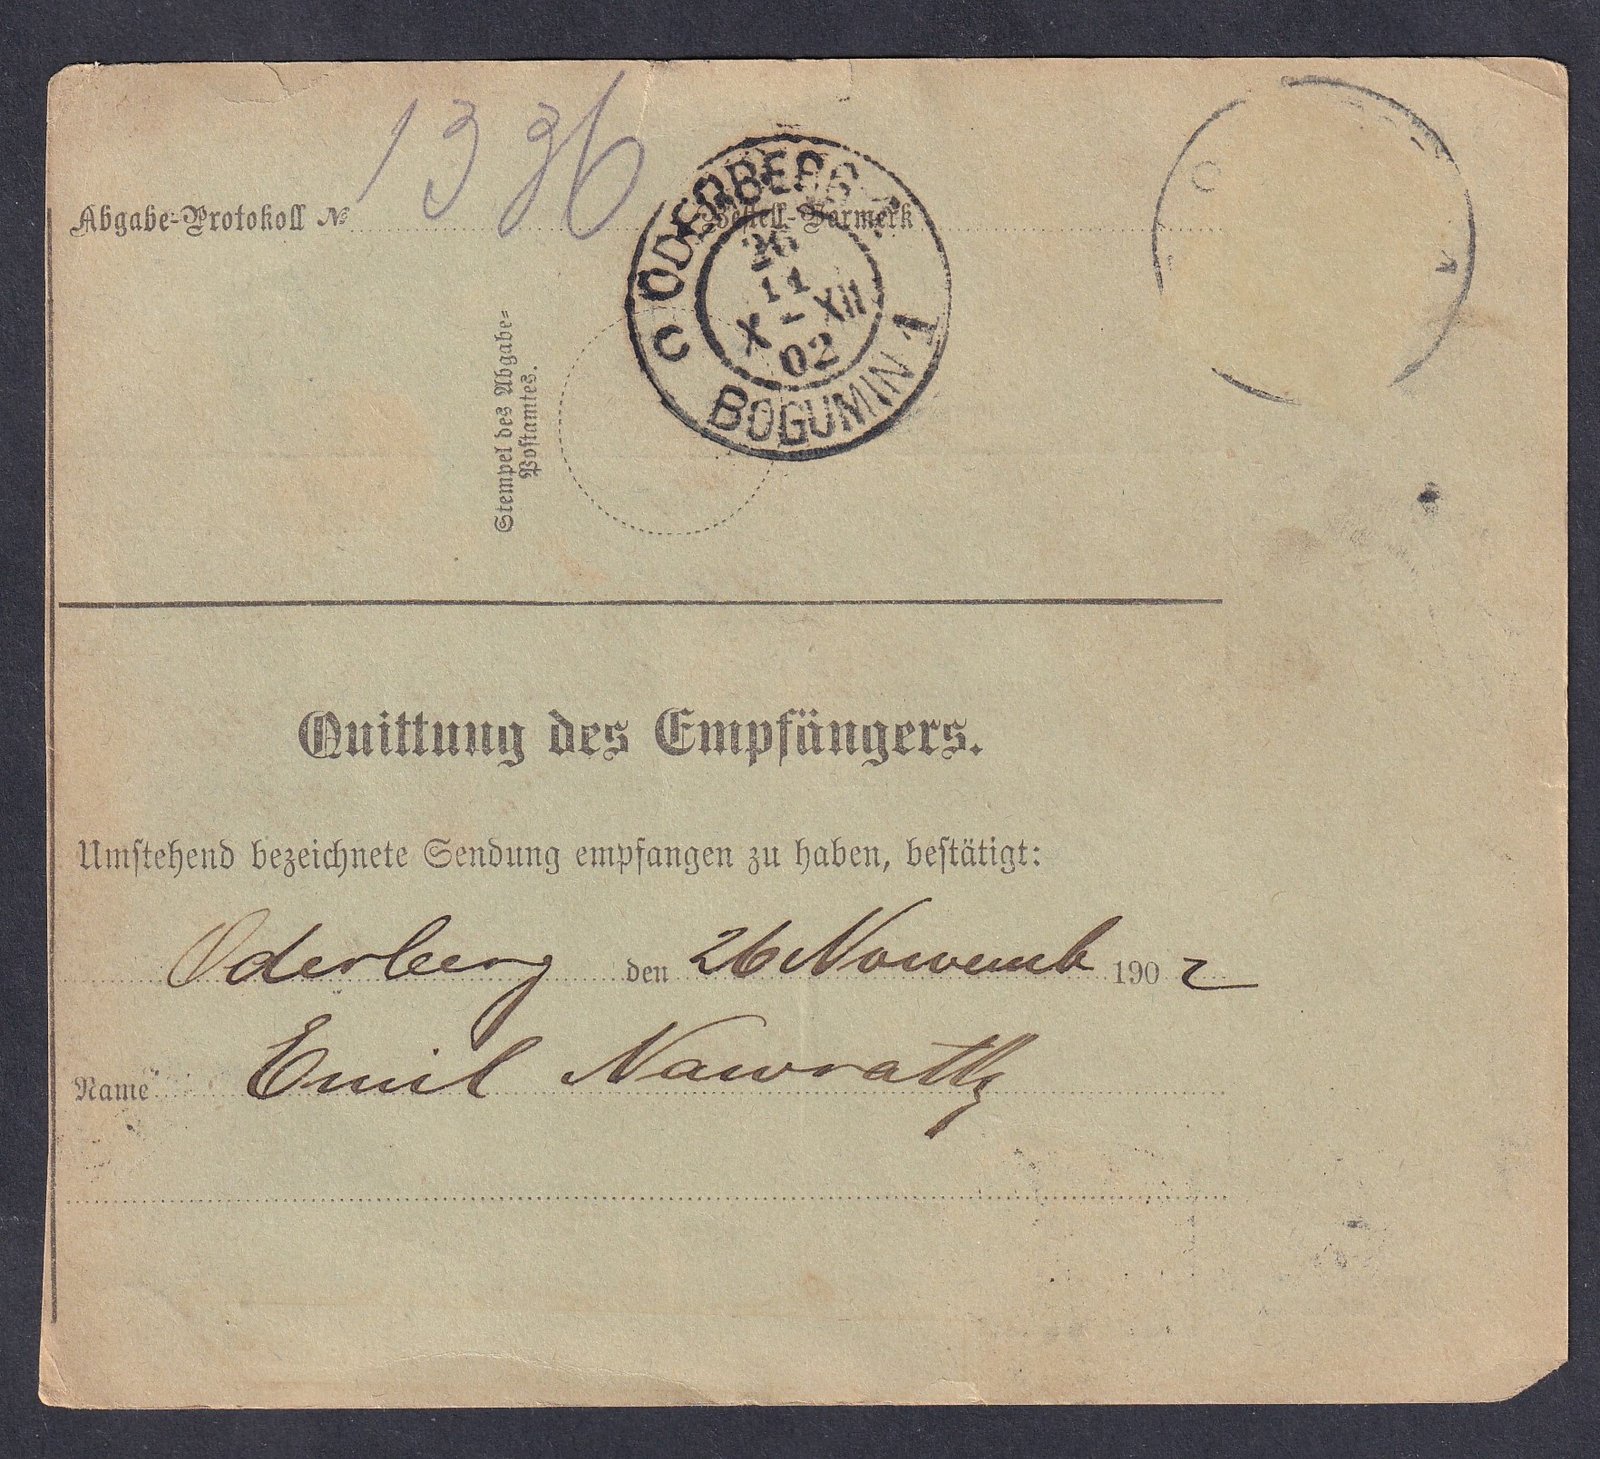 1396
Abgabe-Protokoll №
Bestell-Vormerk
ODERBERG 1
26
11
X-XII
02
C
BOGUMIN 1
Stempel des Abgabe-
Postamtes.
Quittung des Empfängers.
Umstehend bezeichnete Sendung empfangen zu haben, bestätigt:
Oderberg den 26 Novemb 1902
Name Emil Nawrath